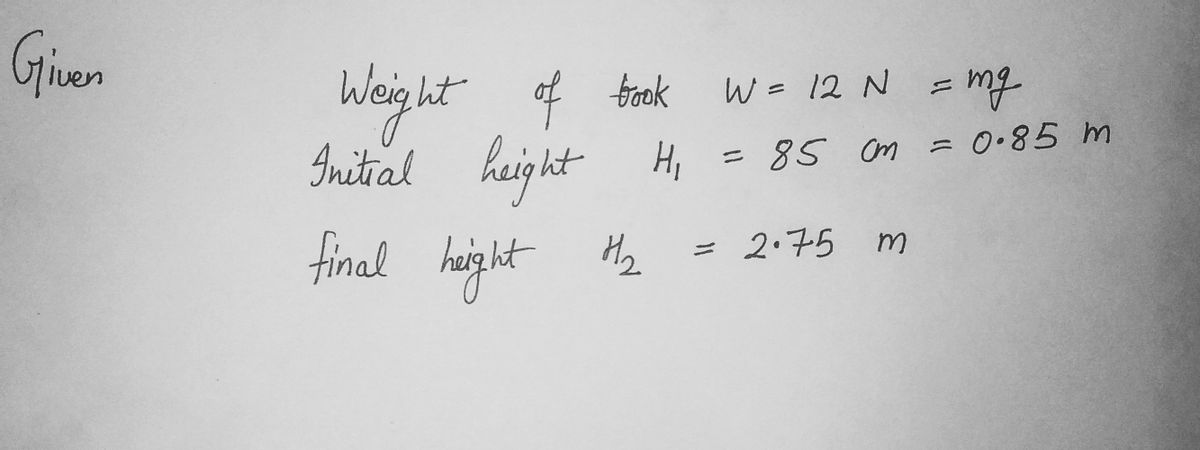 Given
Weight of book W = 12 N = mg
Initial height H₁ = 85 cm = 0.85 m
final height H₂ = 2.75 m